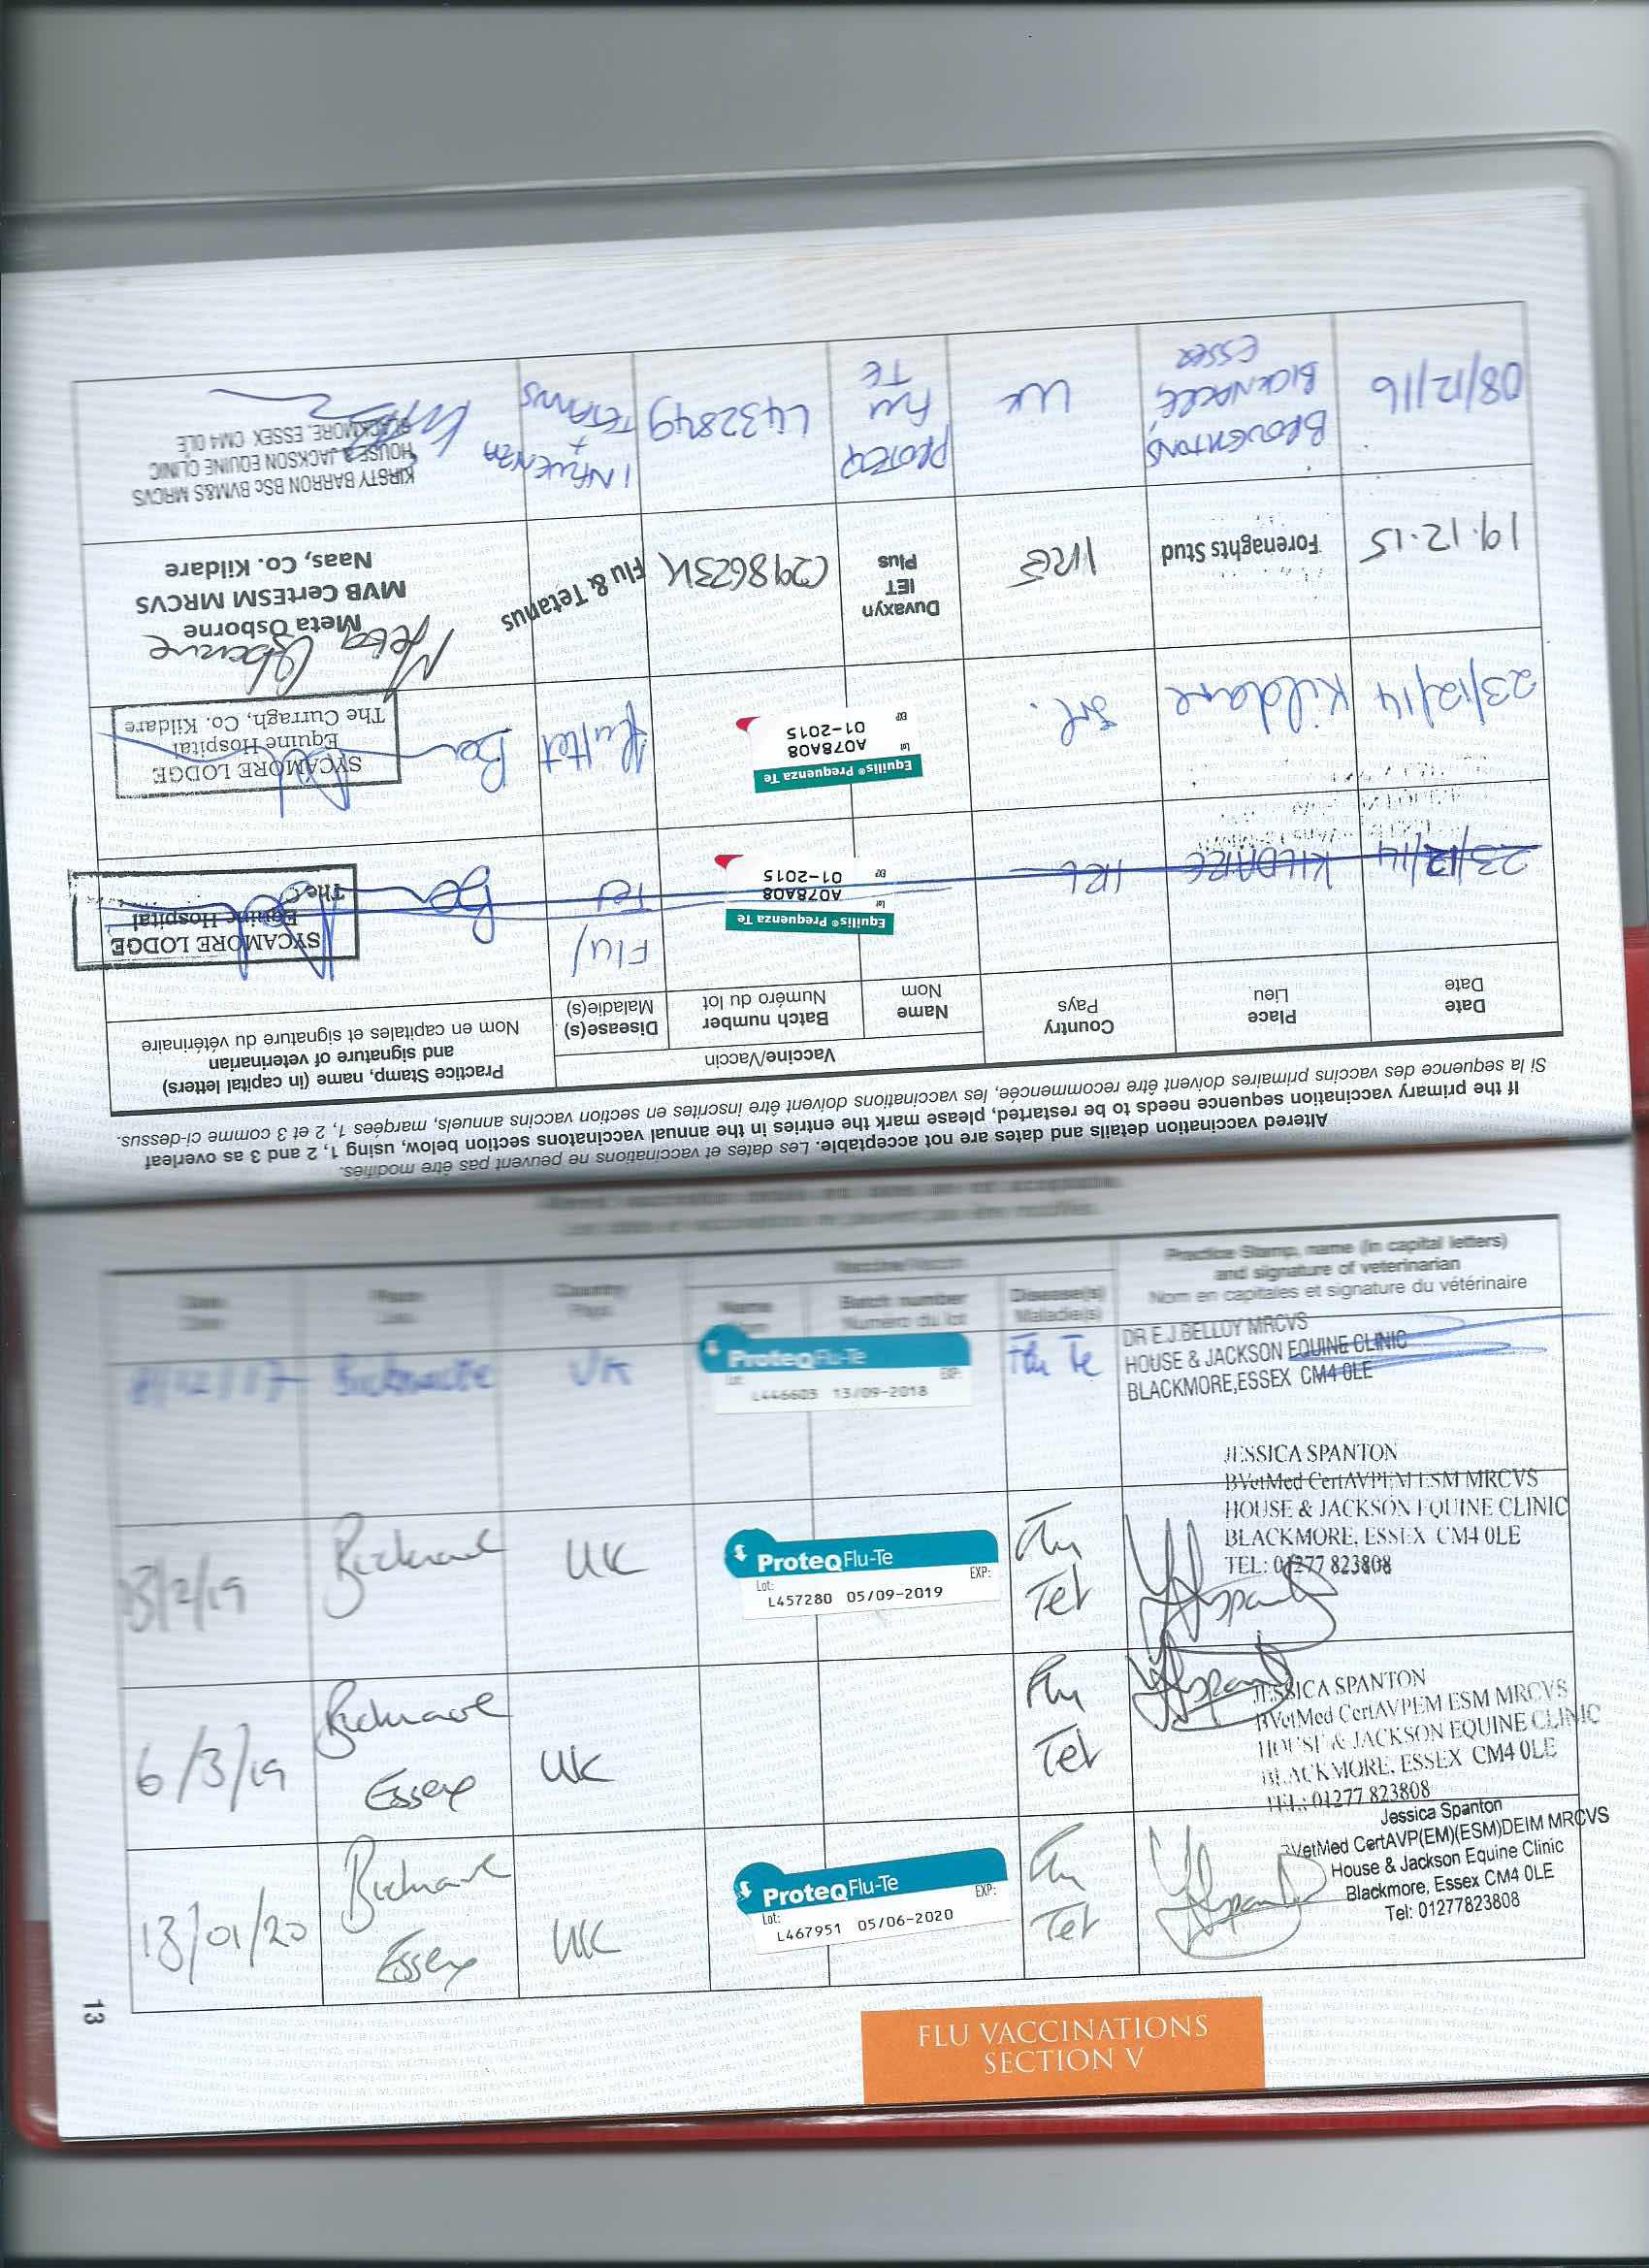 Altered vaccination details and dates are not acceptable. Les dates et vaccinations ne peuvent pas être modifiés.
If the primary vaccination sequence needs to be restarted, please mark the entries in the annual vaccinatons section below, using 1, 2 and 3 as overleaf
Si la sequence des vaccins primaires doivent être recommencée, les vaccinations doivent être inscrites en section vaccins annuels, margées 1, 2 et 3 comme ci-dessus.
Date
Date
Place
Lieu
Country
Pays
Vaccine/Vaccin
Name
Nom
Batch number
Numéro du lot
Disease(s)
Maladie(s)
Practice Stamp, name (in capital letters)
and signature of veterinarian
Nom en capitales et signature du vétérinaire
23/12/14
KILDARE
IRL
Equilis® Prequenza Te
Lot
A078A08
EXP
01-2015
Flu/
Tet
SYCAMORE LODGE
Equine Hospital
The C
23/12/14
Kildare
Irl.
Equilis® Prequenza Te
Lot
A078A08
EXP
01-2015
Flu Tet
SYCAMORE LODGE
Equine Hospital
The Curragh, Co. Kildare
19.12.15
Forenaghts Stud
IRE
Duvaxyn
IET
Plus
C298623K
Flu & Tetanus
Meta Osborne
Meta Osborne
MVB CertESM MRCVS
Naas, Co. Kildare
08/12/16
BROUGHTONS
BICKNACRE,
ESSEX
UK
PROTEQ
FLU
TE
L432849
INFLUENZA
+
TETANUS
KIRSTY BARRON BSc BVM&S MRCVS
HOUSE & JACKSON EQUINE CLINIC
BLACKMORE, ESSEX CM4 0LE
Les dates et vaccinations ne peuvent pas être modifiés.
Date
Date
Place
Lieu
Country
Pays
Vaccine/Vaccin
Name
Nom
Batch number
Numéro du lot
Disease(s)
Maladie(s)
Practice Stamp, name (in capital letters)
and signature of veterinarian
Nom en capitales et signature du vétérinaire
/12/17
Bicknacre
UK
ProteqFlu-Te
Lot: EXP:
L446603 13/09-2018
Flu Te
DR E.J.BELLOY MRCVS
HOUSE & JACKSON EQUINE CLINIC
BLACKMORE,ESSEX CM4 0LE
13/2/19
Bicknacre
UK
ProteqFlu-Te
Lot: EXP:
L457280 05/09-2019
Flu
Tet
JESSICA SPANTON
BVetMed CertAVPEM ESM MRCVS
HOUSE & JACKSON EQUINE CLINIC
BLACKMORE, ESSEX CM4 0LE
TEL: 01277 823808
6/3/19
Bicknacre
Essex
UK
Flu
Tet
JESSICA SPANTON
BVetMed CertAVPEM ESM MRCVS
HOUSE & JACKSON EQUINE CLINIC
BLACKMORE, ESSEX CM4 0LE
TEL: 01277 823808
13/01/20
Bicknacre
Essex
UK
ProteqFlu-Te
Lot: EXP:
L467951 05/06-2020
Flu
Tet
Jessica Spanton
BVetMed CertAVP(EM)(ESM)DEIM MRCVS
House & Jackson Equine Clinic
Blackmore, Essex CM4 0LE
Tel: 01277823808
13
FLU VACCINATIONS
SECTION V